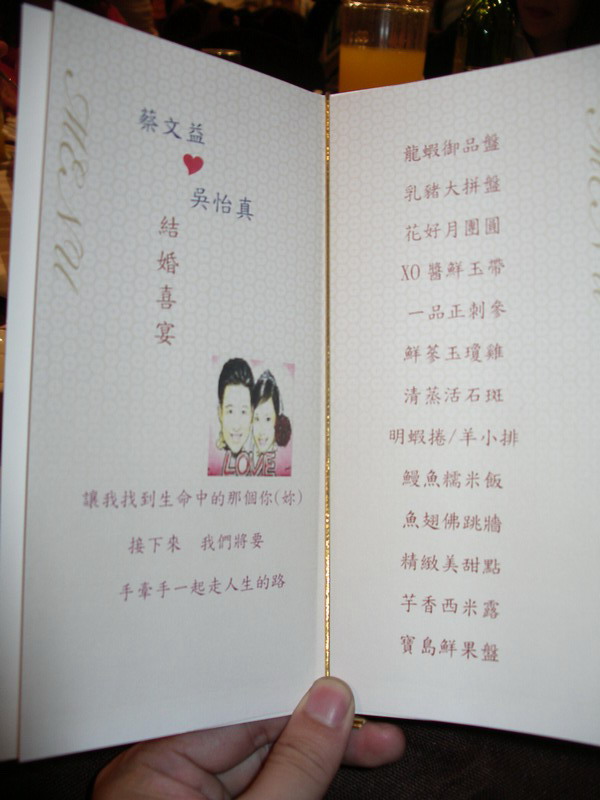 MENU
蔡文益
吳怡真
結婚喜宴
LOVE
讓我找到生命中的那個你(妳)
接下來 我們將要
手牽手一起走人生的路
龍蝦御品盤
乳豬大拼盤
花好月團圓
XO醬鮮玉帶
一品正刺參
鮮蔘玉瓊雞
清蒸活石斑
明蝦捲/羊小排
鰻魚糯米飯
魚翅佛跳牆
精緻美甜點
芋香西米露
寶島鮮果盤
MENU